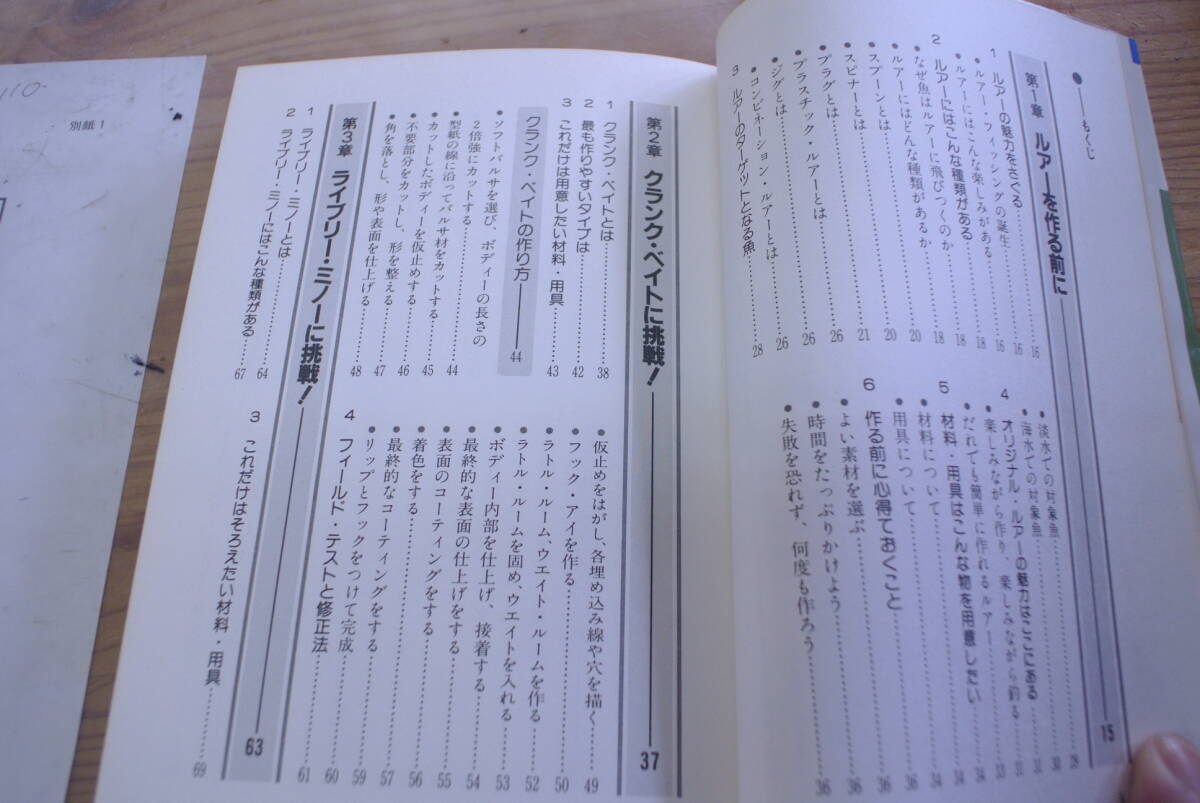 ●——もくじ
第1章 ルアーを作る前に 15
1 ルアーの魅力をさぐる 16
●ルアー・フィッシングの誕生 16
●ルアーにはこんな楽しみがある 16
2 ルアーにはこんな種類がある 18
●なぜ魚はルアーに飛びつくのか 18
●ルアーにはどんな種類があるか 20
●スプーンとは 20
●スピナーとは 21
●プラグとは 26
●プラスチック・ルアーとは 26
●ジグとは 26
●コンビネーション・ルアーとは 26
3 ルアーのターゲットとなる魚 28
●淡水での対象魚 28
●海水での対象魚 30
4 オリジナル・ルアーの魅力はここにある 31
●楽しみながら作り、楽しみながら釣る 31
●だれでも簡単に作れるルアー 33
5 材料・用具はこんな物を用意したい 34
●材料について 34
●用具について 34
6 作る前に心得ておくこと 36
●よい素材を選ぶ 36
●時間をたっぷりかけよう 36
●失敗を恐れず、何度も作ろう 36
第2章 クランク・ベイトに挑戦! 37
1 クランク・ベイトとは 38
2 最も作りやすいタイプは 42
3 これだけは用意したい材料・用具 43
クランク・ベイトの作り方 44
●ソフトバルサを選び、ボディーの長さの
2倍強にカットする 44
●型紙の線に沿ってバルサ材をカットする 44
●カットしたボディーを仮止めする 45
●不要部分をカットし、形を整える 46
●角を落とし、形や表面を仕上げる 47
48
●仮止めをはがし、各埋め込み線や穴を描く 49
●フック・アイを作る 50
●ラトル・ルーム、ウエイト・ルームを作る 52
●ラトル・ルームを固め、ウエイトを入れる 53
●ボディー内部を仕上げ、接着する 54
●最終的な表面の仕上げをする 55
●表面のコーティングをする 56
●着色をする 57
●最終的なコーティングをする 59
●リップとフックをつけて完成 60
4 フィールド・テストと修正法 61
第3章 ライブリー・ミノーに挑戦! 63
1 ライブリー・ミノーとは 64
2 ライブリー・ミノーにはこんな種類がある 67
3 これだけはそろえたい材料・用具 69
別紙1